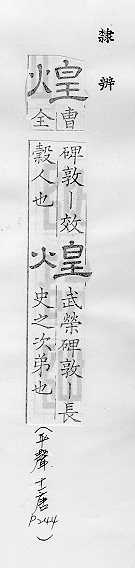 隸辨
煌
曹全
碑敦|效
穀人也
煌
武榮碑敦|長
史之次弟也
(平聲十一唐
P244)